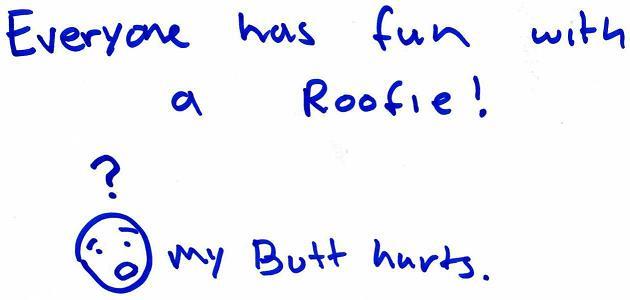 Everyone has fun with
a Roofie!
?
my Butt hurts.